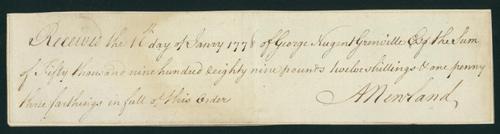 Received the 16th day of Janry 1778 of George Nugent Grenville Esq the Sum
of Fifty thousand nine hundred & eighty nine pounds twelve shillings & one penny
three farthings in full of this Order
A Newland